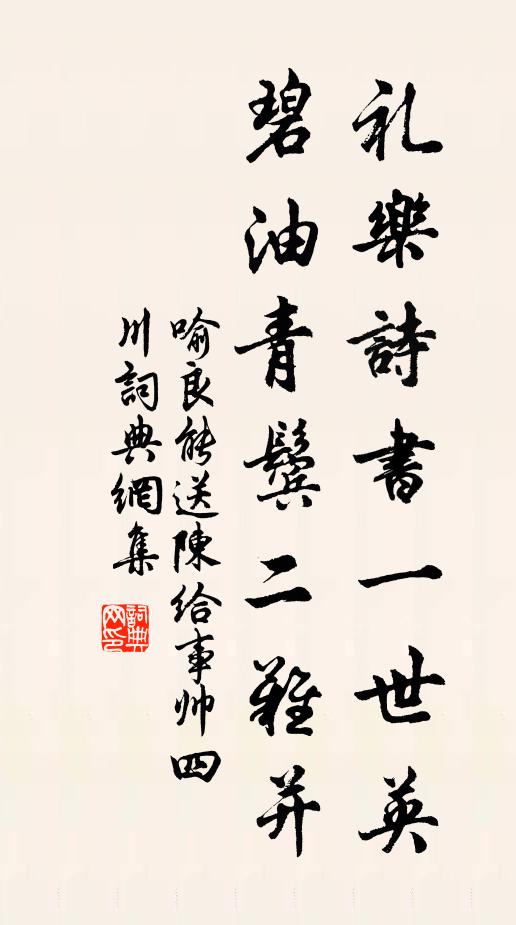 礼樂詩書一世英
碧油青鬢二難并
喻良能送陳給事帅四
川詞典網集
詞典
网印